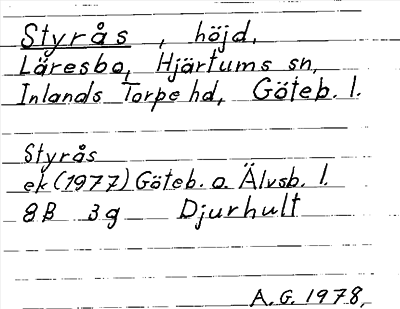 Styrås, höjd.
Läresbo, Hjärtums sn,
Inlands Torpe hd, Göteb. l.
Styrås
ek (1977) Göteb. o. Älvsb. l.
8B 3g Djurhult
A.G. 1978.